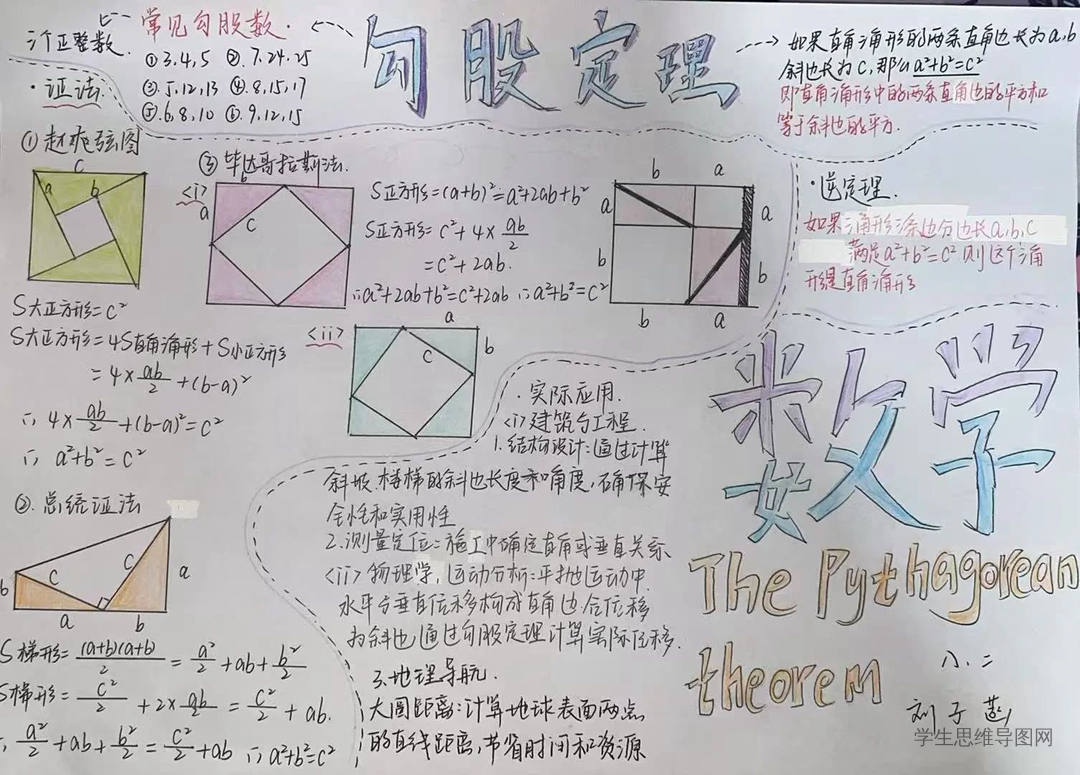 勾股定理
常见勾股数.
三个正整数.
①3,4,5 ②.7,24,25
③.5,12,13 ④.8,15,17
⑤.6,8,10 ⑥.9,12,15
如果直角三角形的两条直角边长为a,b
斜边长为c,那么a²+b²=c²
即直角三角形中的两条直角边的平方和
等于斜边的平方.
·证法.
①赵爽弦图
c
a
b
S大正方形=c²
S大正方形=4S直角三角形+S小正方形
=4×ab/2+(b-a)²
∴ 4×ab/2+(b-a)²=c²
∴ a²+b²=c²
②.总统证法
b
c
c
a
a
b
S梯形=(a+b)(a+b)/2=a²/2+ab+b²/2
S梯形=c²/2+2×ab/2=c²/2+ab.
∴a²/2+ab+b²/2=c²/2+ab ∴a²+b²=c²
③毕达哥拉斯法.
<i>
b
a
c
S正方形=(a+b)²=a²+2ab+b²
S正方形=c²+4×ab/2
=c²+2ab.
∴a²+2ab+b²=c²+2ab ∴a²+b²=c²
b a
a
a
b
b
b a
<ii>
a
c
b
·逆定理.
如果三角形三条边分边长a,b,c
满足a²+b²=c²则这个三角
形是直角三角形
·实际应用.
<i>建筑与工程.
1.结构设计:通过计算
斜坡、楼梯的斜边长度和角度,确保安
全性和实用性
2.测量定位:施工中确定直角或垂直关系
<ii>物理学,运动分析:平抛运动中,
水平与垂直位移构成直角边,合位移
为斜边,通过勾股定理计算实际位移.
3.地理导航.
大圆距离:计算地球表面两点
的直线距离,节省时间和资源
数学
The Pythagorean
theorem
八.二
刘子
学生思维导图网